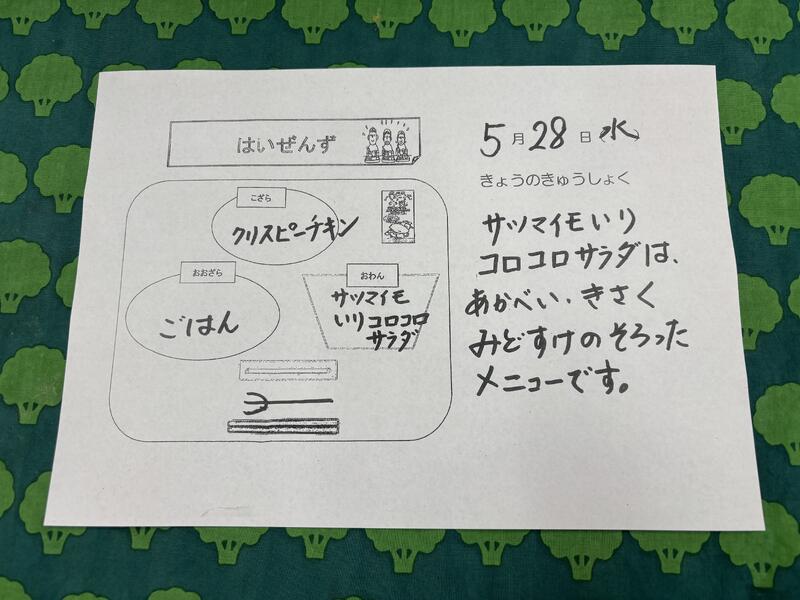 はいぜんず
こざら
クリスピーチキン
おおざら
ごはん
おわん
サツマイモ
いりコロコロ
サラダ
5月28日(水)
きょうのきゅうしょく
サツマイモいり
コロコロサラダは、
あかべい、きさく
みどすけのそろった
メニューです。